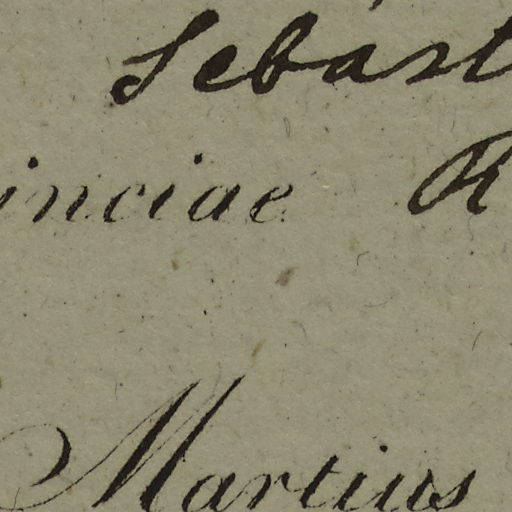 Sebast
inciae R
Martius